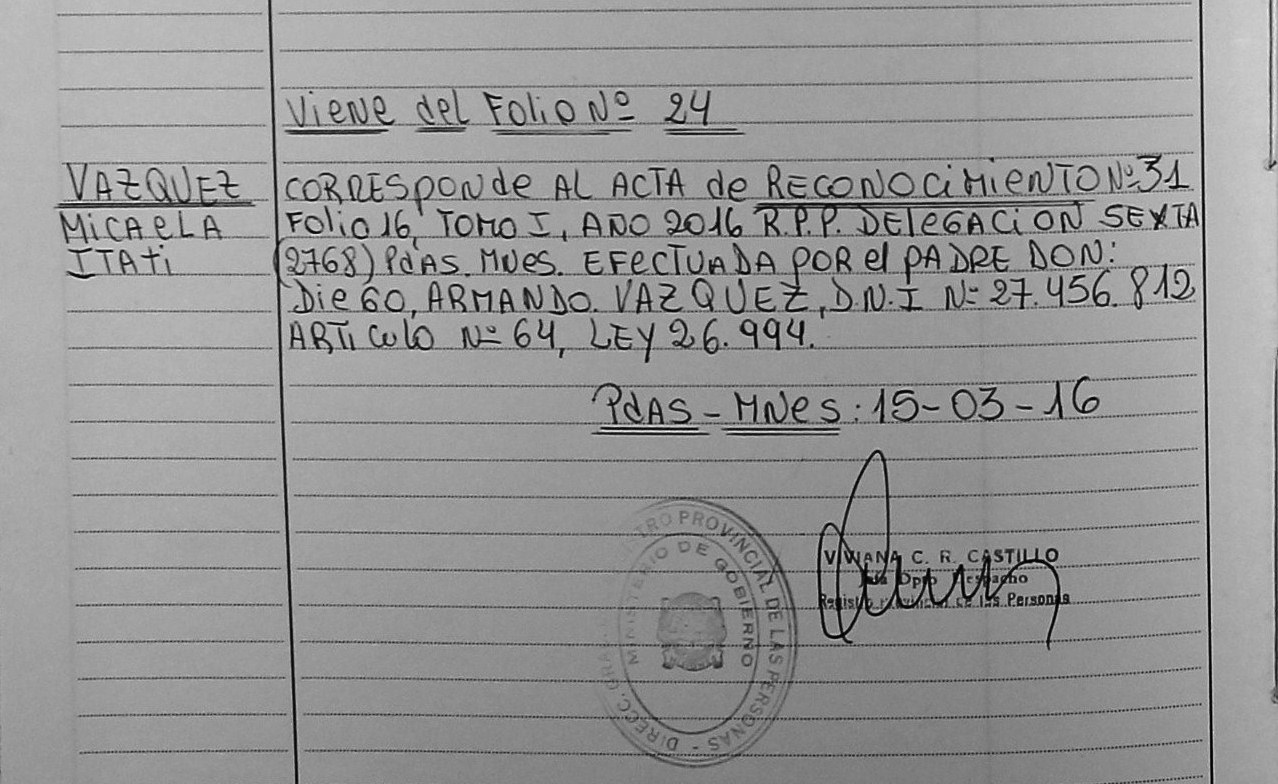 Viene del Folio Nº 24
VAZQUEZ
MICAELA
ITATI
CORRESponde AL ACTA de RECONOCIMIENTO Nº 31
Folio 16, TOMO I, AÑO 2016 R.P.P. DELEGACION SEXTA
(2768) PdAS. MNes. EFECTUADA POR el PADRE DON:
DIEGO, ARMANDO. VAZQUEZ, D.N.I Nº 27.456.812
ARTICULO Nº 64, LEY 26.994.
PdAS - MNes: 15-03-16
VIVIANA C. R. CASTILLO
Dpto Despacho
Registro Provincial de las Personas
PROVINCIAL DE LAS PERSONAS - DIRECC. GRAL
MINISTERIO DE GOBIERNO